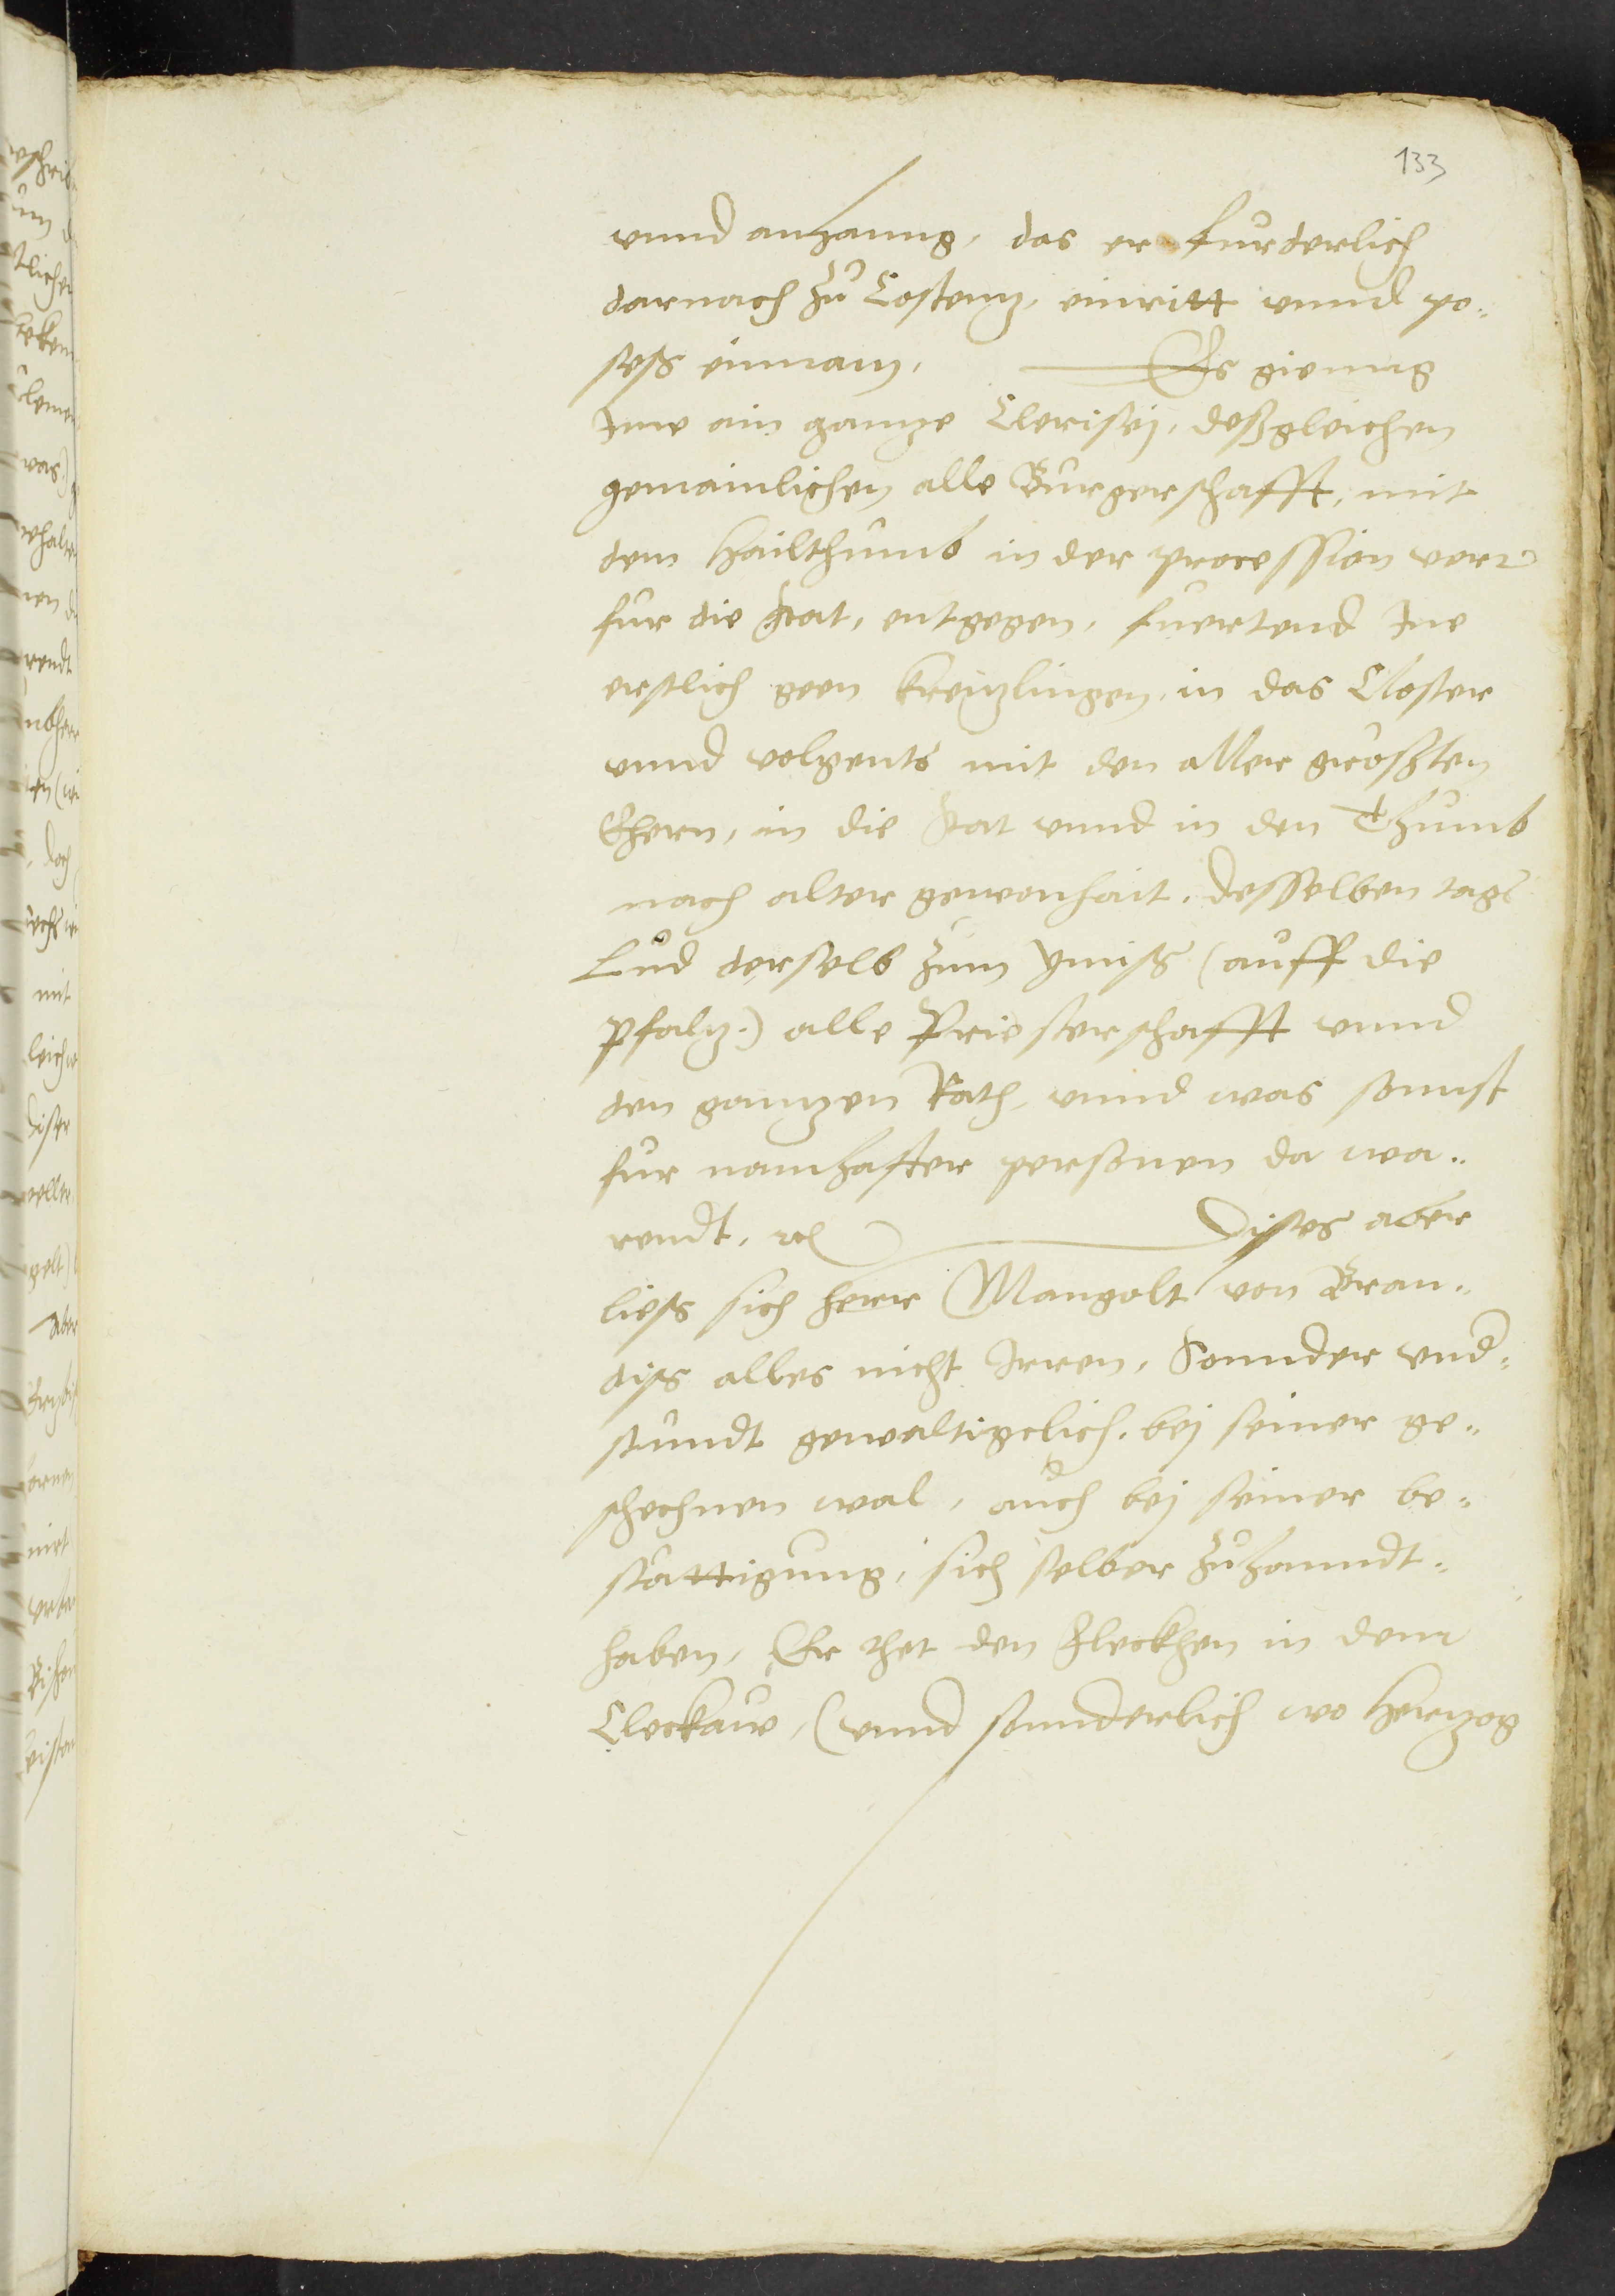 133
vnnd anhanng, das er furderlich
darnach zů Costentz, einritt vnnd po-
sess einnam, Es gienng
Ime ain gantze Clerisej, deßgleichen
gemainlichen alle Burgerschafft, mit
dem Hailthumb in der procession verr
fur die stat, entgegen, fuertend Ine
erstlich geen Kreitzlingen, in das Closter
vnnd volgents mit den aller grösten
Ehern, in die stat vnnd in den Thumb
nach alter gewonhait. desselben tags
Lůd derselb zum ymiß (auff die
Pfaltz.) alle Priesterschafft vnnd
den ganntzen Rath, vnnd was sonnst
fur namhaffter personen da wa-
rendt, etc Dises aber
liess sich herr Mangolt von Bran-
diss alles nicht Irren, Sonnder vnd-
stundt gewaltigclich, bej seiner ge-
schechnen wal, auch bej seiner be-
stättigung, sich selber zůhanndt-
haben, Er thet den Fleckhen in dem
Cleckaw, (vnnd sonnderlich wo Hertzog